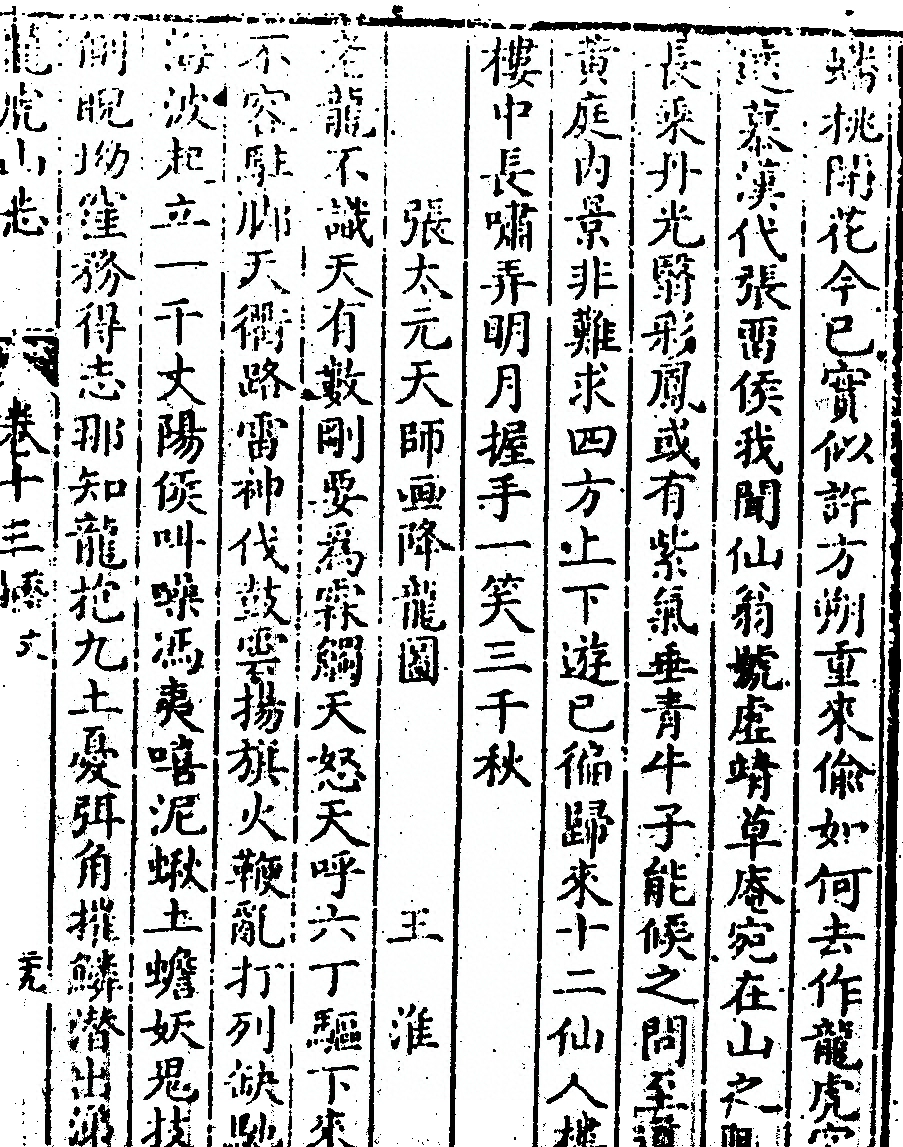 蟠桃開花今已實似許方朔重來偷如何去作龍虎
遠慕漢代張留侯我聞仙翁號虛靖草庵宛在山之
長乘丹光翳彩鳳或有紫氣垂青牛子能候之問至道
黃庭內景非難求四方上下遊已徧歸來十二仙人樓
樓中長嘯弄明月握手一笑三千秋
張太元天師画降龍圖 王淮
老龍不識天有數剛要爲霖觸天怒天呼六丁驅下來
不容駐脚天衢路雷神伐鼓雲揚旗火鞭亂打列缺馳
海波起立一千丈陽侯叫噪馮夷嘻泥蝤土蟾妖鬼技
側睨坳窪務得志那知龍抱九土憂弭角摧鱗潛出
龍虎山志 卷十三 文